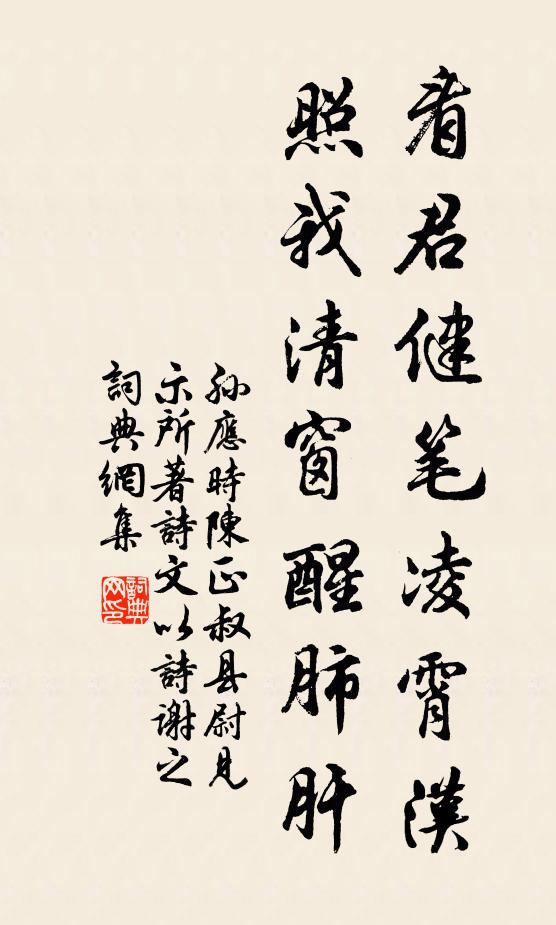 看君健笔凌霄漢
照我清窗醒肺肝
孙應時陳正叔县尉見
示所著詩文以詩谢之
詞典網集
詞典网印